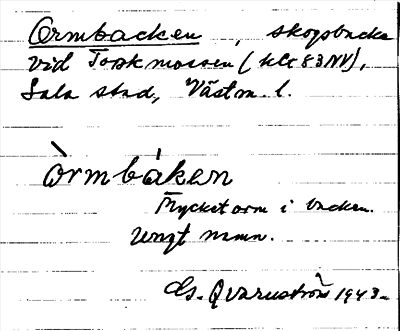 Ormbacken, skogsbacke
vid Torkmossen (kls 83NV),
Sala stad, Västm. l.
Òrmbáken
Mycket orm i backen.
Ungt namn.
Gs. Qvarnström 1943.